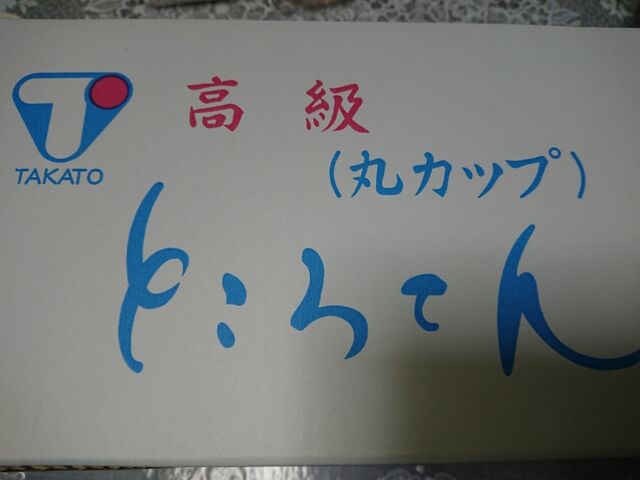 高級
TAKATO
(丸カップ)
ところてん